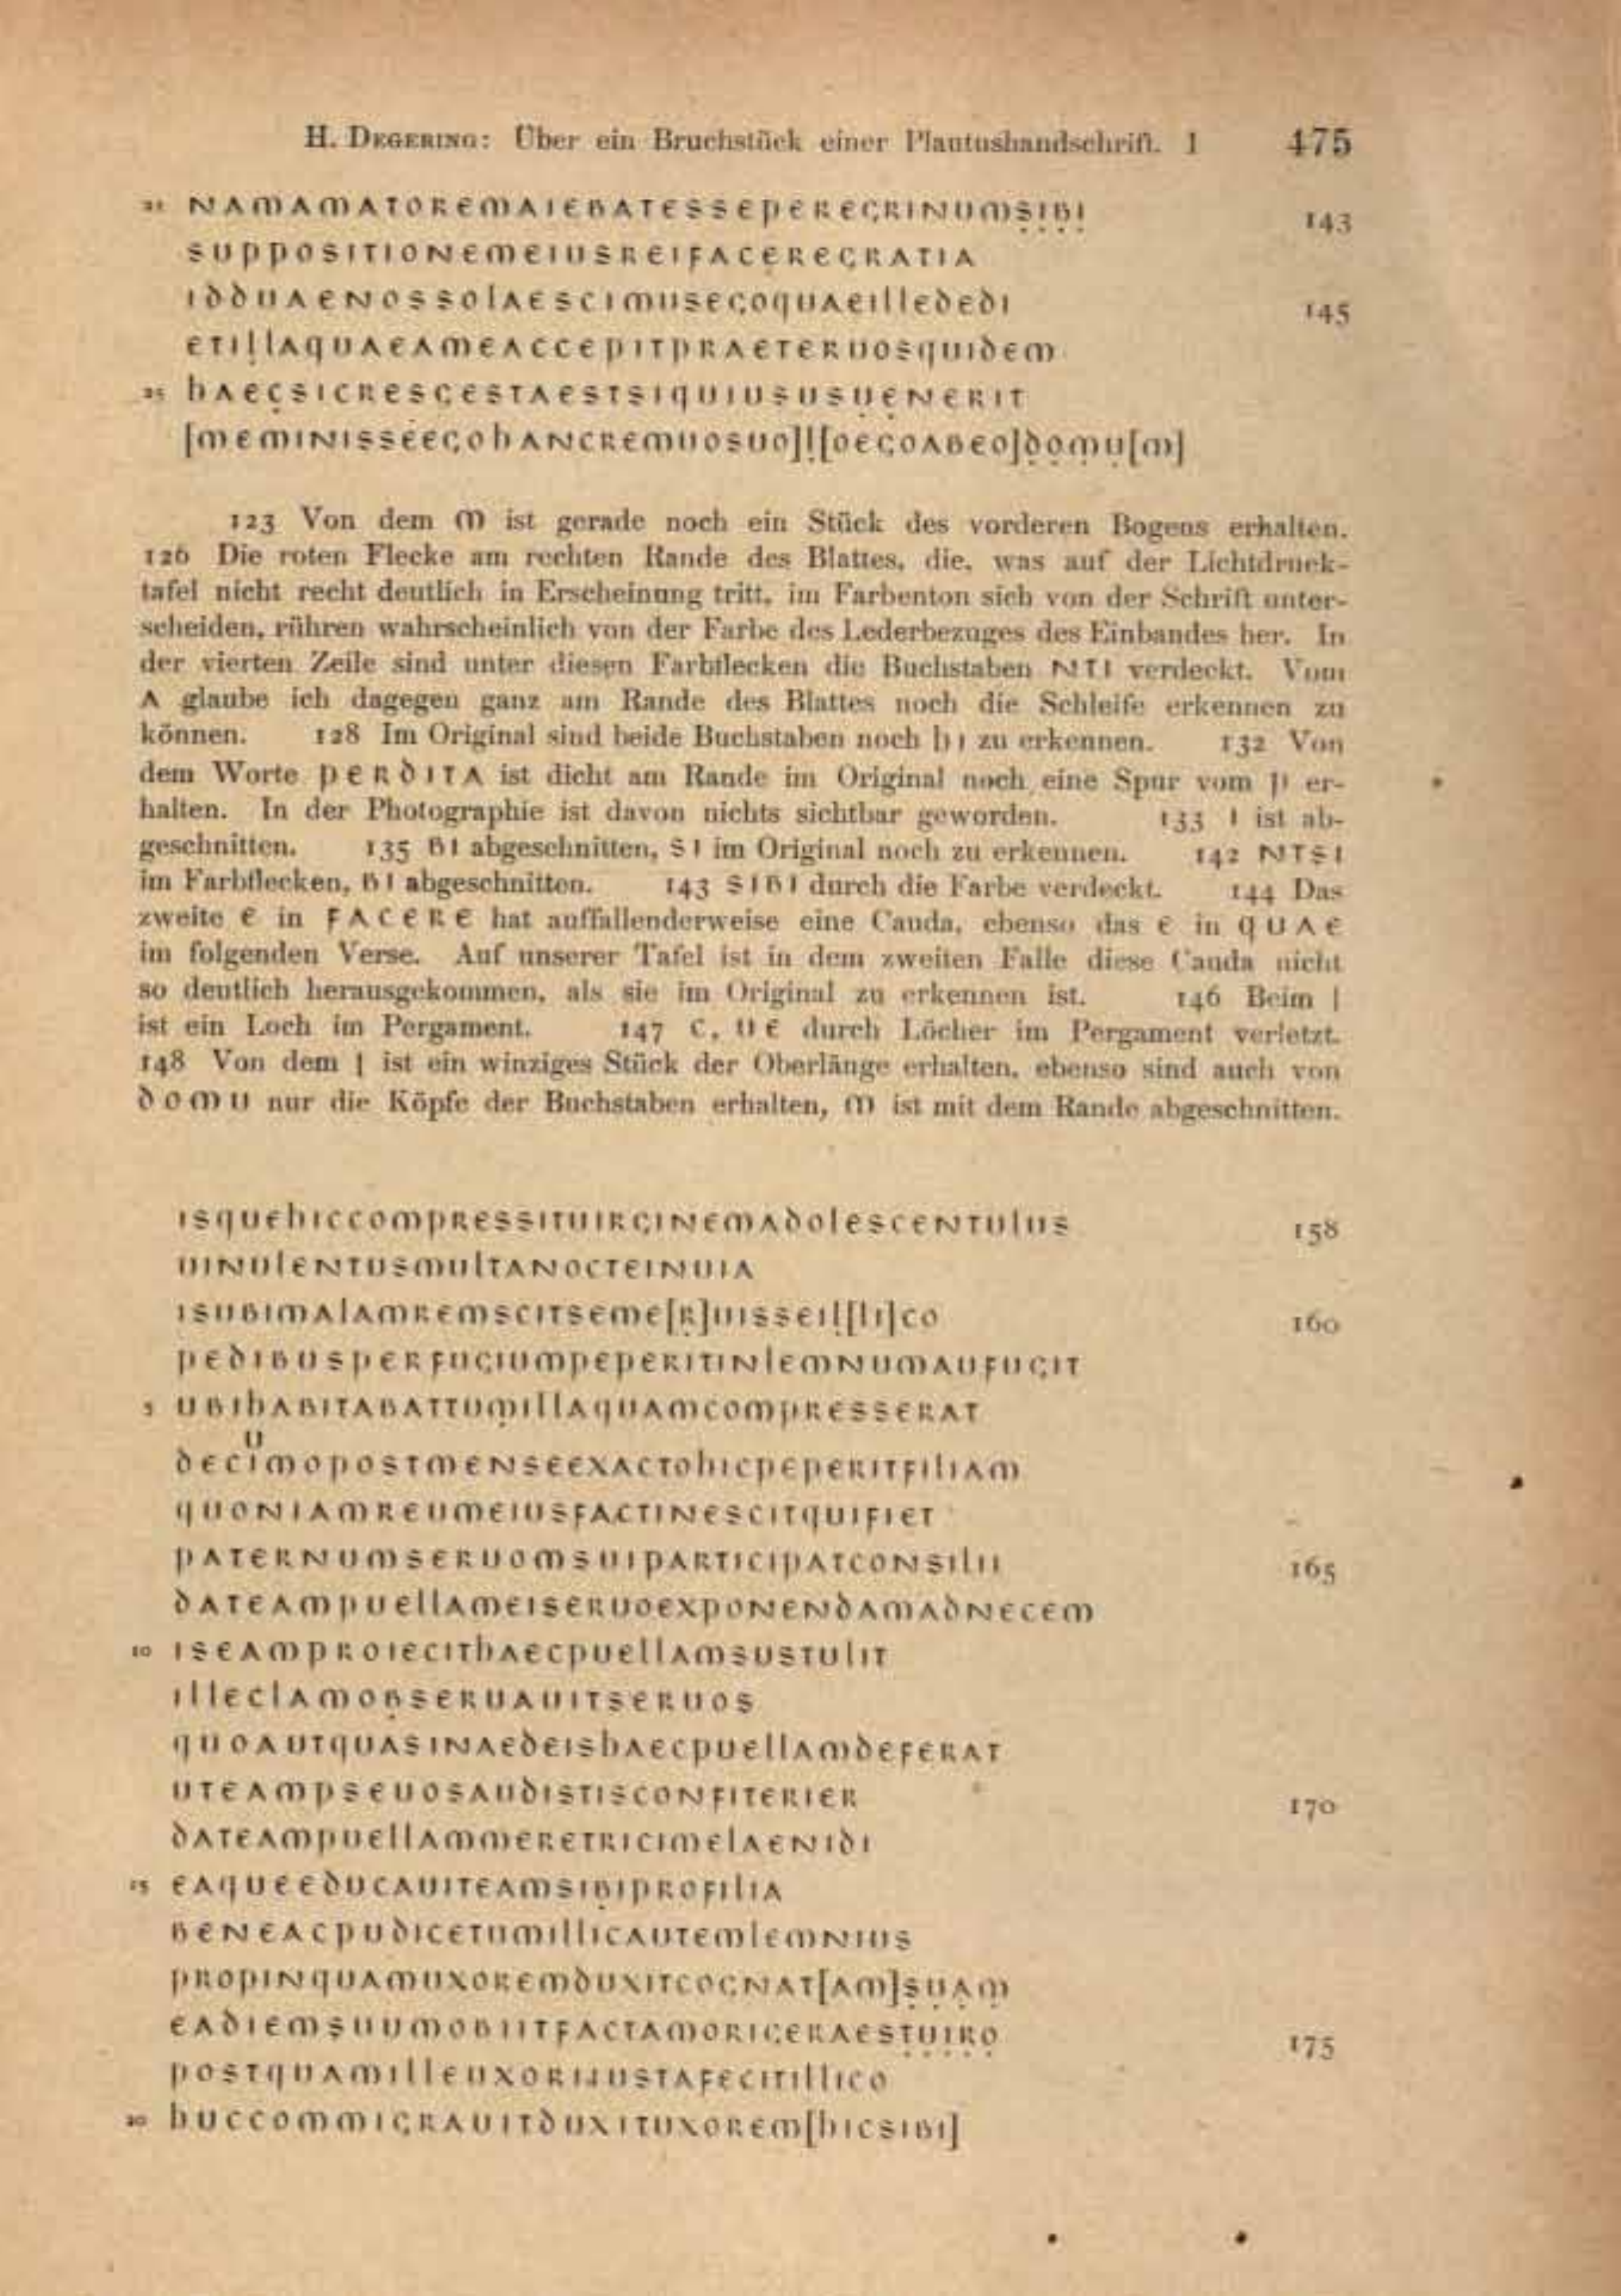 H. Degering: Über ein Bruchstück einer Plautushandschrift. I 475
21 NAMAMATOREMAIEBATESSEPEREGRINUMSIBI 143
SUPPOSITIONEMEIUSREIFACEREGRATIA
IDDUAENOSSOLAESCIMUSEGOQUAEILLEDEDI 145
ETILLAQUAEAMEACCEPITPRAETERUOSQUIDEM
25 HAECSICRESGESTAESTSIQUIUSUSUENERIT
[MEMINISSEEGOHANCREMUOSUO]L[OEGOABEO]DOMU[M]
123 Von dem M ist gerade noch ein Stück des vorderen Bogens erhalten.
126 Die roten Flecke am rechten Rande des Blattes, die, was auf der Lichtdruck-
tafel nicht recht deutlich in Erscheinung tritt, im Farbenton sich von der Schrift unter-
scheiden, rühren wahrscheinlich von der Farbe des Lederbezuges des Einbandes her. In
der vierten Zeile sind unter diesen Farbflecken die Buchstaben NTI verdeckt. Vom
A glaube ich dagegen ganz am Rande des Blattes noch die Schleife erkennen zu
können. 128 Im Original sind beide Buchstaben noch HI zu erkennen. 132 Von
dem Worte PERDITA ist dicht am Rande im Original noch eine Spur vom P er-
halten. In der Photographie ist davon nichts sichtbar geworden. 133 I ist ab-
geschnitten. 135 BI abgeschnitten, SI im Original noch zu erkennen. 142 NTSI
im Farbflecken, BI abgeschnitten. 143 SIBI durch die Farbe verdeckt. 144 Das
zweite E in FACERE hat auffallenderweise eine Cauda, ebenso das E in QUAE
im folgenden Verse. Auf unserer Tafel ist in dem zweiten Falle diese Cauda nicht
so deutlich herausgekommen, als sie im Original zu erkennen ist. 146 Beim L
ist ein Loch im Pergament. 147 C, UE durch Löcher im Pergament verletzt.
148 Von dem L ist ein winziges Stück der Oberlänge erhalten, ebenso sind auch von
DOMU nur die Köpfe der Buchstaben erhalten, M ist mit dem Rande abgeschnitten.
ISQUEHICCOMPRESSITUIRGINEMADOLESCENTULUS 158
UINULENTUSMULTANOCTEINUIA
ISUBIMALAMREMSCITSEME[R]UISSEIL[LI]CO 160
PEDIBUSPERFUGIUMPEPERITINLEMNUMAUFUGIT
5 UBIHABITABATTUMILLAQUAMCOMPRESSERAT
U
DECIMOPOSTMENSEEXACTOHICPEPERITFILIAM
QUONIAMREUMEIUSFACTINESCITQUIFIET
PATERNUMSERUOMSUIPARTICIPATCONSILII 165
DATEAMPUELLAMEISERUOEXPONENDAMADNECEM
10 ISEAMPROIECITHAECPUELLAMSUSTULIT
ILLECLAMOBSERUAUITSERUOS
QUOAUTQUASINAEDEISHAECPUELLAMDEFERAT
UTEAMPSEUOSAUDISTISCONFITERIER 170
DATEAMPUELLAMMERETRICIMELAENIDI
15 EAQUEEDUCAUITEAMSIBIPROFILIA
BENEACPUDICETUMILLICAUTEMLEMNIUS
PROPINQUAMUXOREMDUXITCOGNAT[AM]SUAM
EADIEMSUUMOBIITFACTAMORIGERAESTUIRO 175
POSTQUAMILLEUXORIIUSTAFECITILLICO
20 HUCCOMMIGRAUITDUXITUXOREM[HICSIBI]